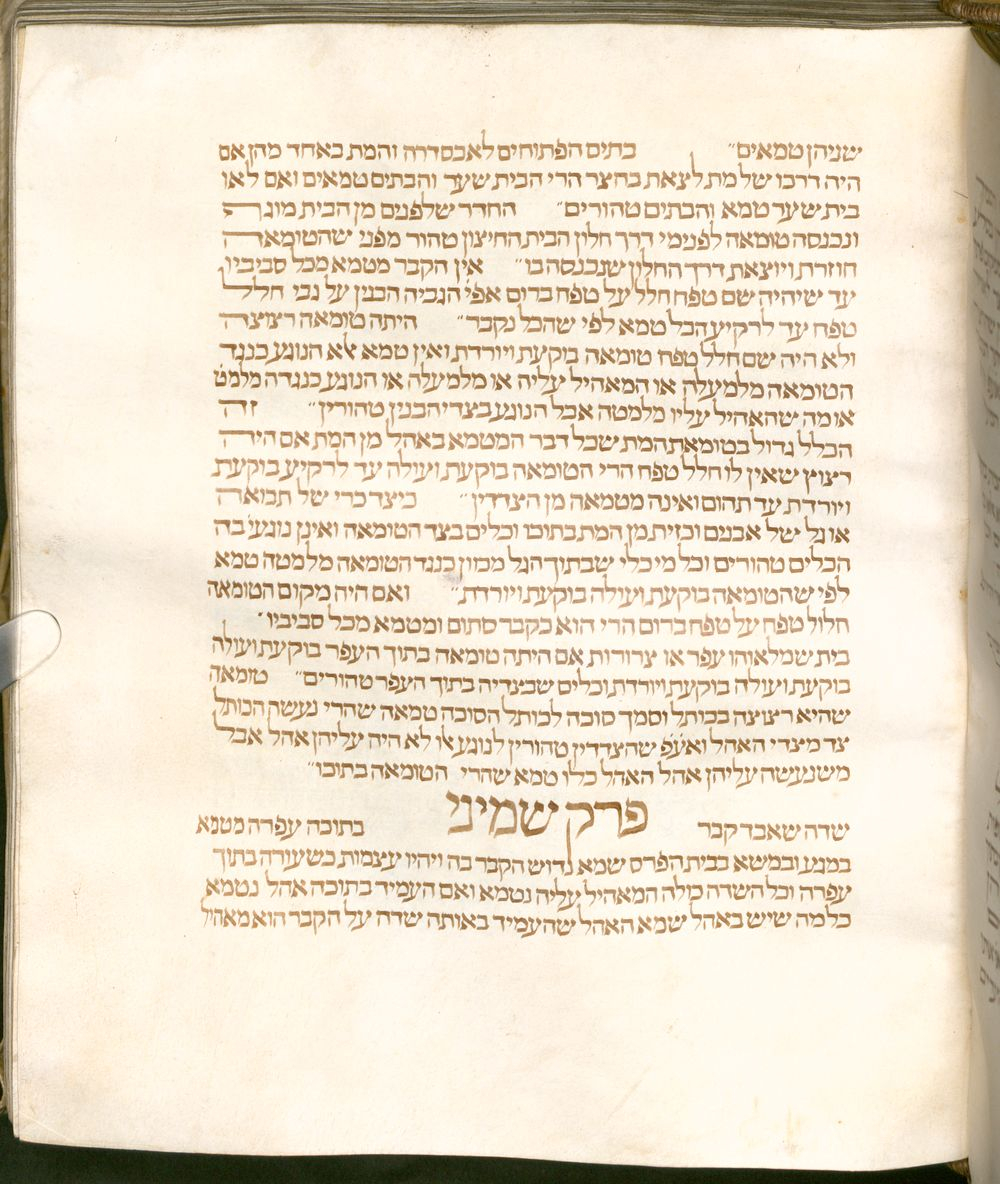 שניהן טמאים״ בתים הפתוחים לאכסדרה והמת באחד מהן אם
היה דרכו של מת לצאת בחצר הרי הבית שער והבתים טמאים ואם לאו
בית שער טמא והבתים טהורים״ החדר שלפנים מן הבית מונה
ונכנסה טומאה לפנימי דרך חלון הבית החיצון טהור מפני שהטומאה
חוזרת ויוצאת דרך החלון שנכנסה בו״ אין הקבר מטמא מכל סביביו
עד שיהיה שם טפח חלל על טפח ברום אפי׳ הגביה הבנין על גבי חלל
טפח עד לרקיע הכל טמא לפי שהכל נקבר״ היתה טומאה רצוצה
ולא היה שם חלל טפח טומאה בוקעת ויורדת ואין טמא אלא הנוגע כנגד
הטומאה מלמעלה או המאהיל עליה או מלמעלה או הנוגע כנגדה מלמט׳
או מה שהאהיל עליו מלמטה אבל הנוגע בצדי הבנין טהורין״ זה
הכלל גדול בטומאת המת שכל דבר המטמא באהל מן המת אם היה
רצוץ שאין לו חלל טפח הרי הטומאה בוקעת ועולה עד לרקיע בוקעת
ויורדת עד תהום ואינה מטמאה מן הצדדין״ כיצד כרי של תבואה
או גל של אבנים וכזית מן המת בתוכו וכלים בצד הטומאה ואינן נוגע׳ בה
הכלים טהורים וכל מי כלי שבתוך הגל מכוון כנגד הטומאה מלמטה טמא
לפי שהטומאה בוקעת ועולה בוקעת ויורדת״ ואם היה מקום הטומאה
חלול טפח על טפח ברום הרי הוא כקבר סתום ומטמא מכל סביביו׳
בית שמלאוהו עפר או צרורות אם היתה טומאה בתוך העפר בוקעת ועולה
בוקעת ועולה בוקעת ויורדת וכלים שבצדיה בתוך העפר טהורים״ טומאה
שהיא רצוצה בכותל וסמך סוכה לכותל הסוכה טמאה שהרי נעשה הכותל
צד מצדי האהל ואע״פ שהצדדין טהורין לנוגע או לא היה עליהן אהל אבל
משנעשה עליהן אהל האהל כלו טמא שהרי הטומאה בתוכו״
פרק שמיני
שדה שאבד קבר בתוכה עפרה מטמא
במגע ובמשא כבית הפרס שמא נדוש הקבר בה ויהיו עצמות כשעורה בתוך
עפרה וכל השדה כולה המאהיל עליה נטמא ואם העמיד בתוכה אהל נטמא
כל מה שיש באהל שמא האהל שהעמיד באותה שדה על הקבר הוא מאהיל